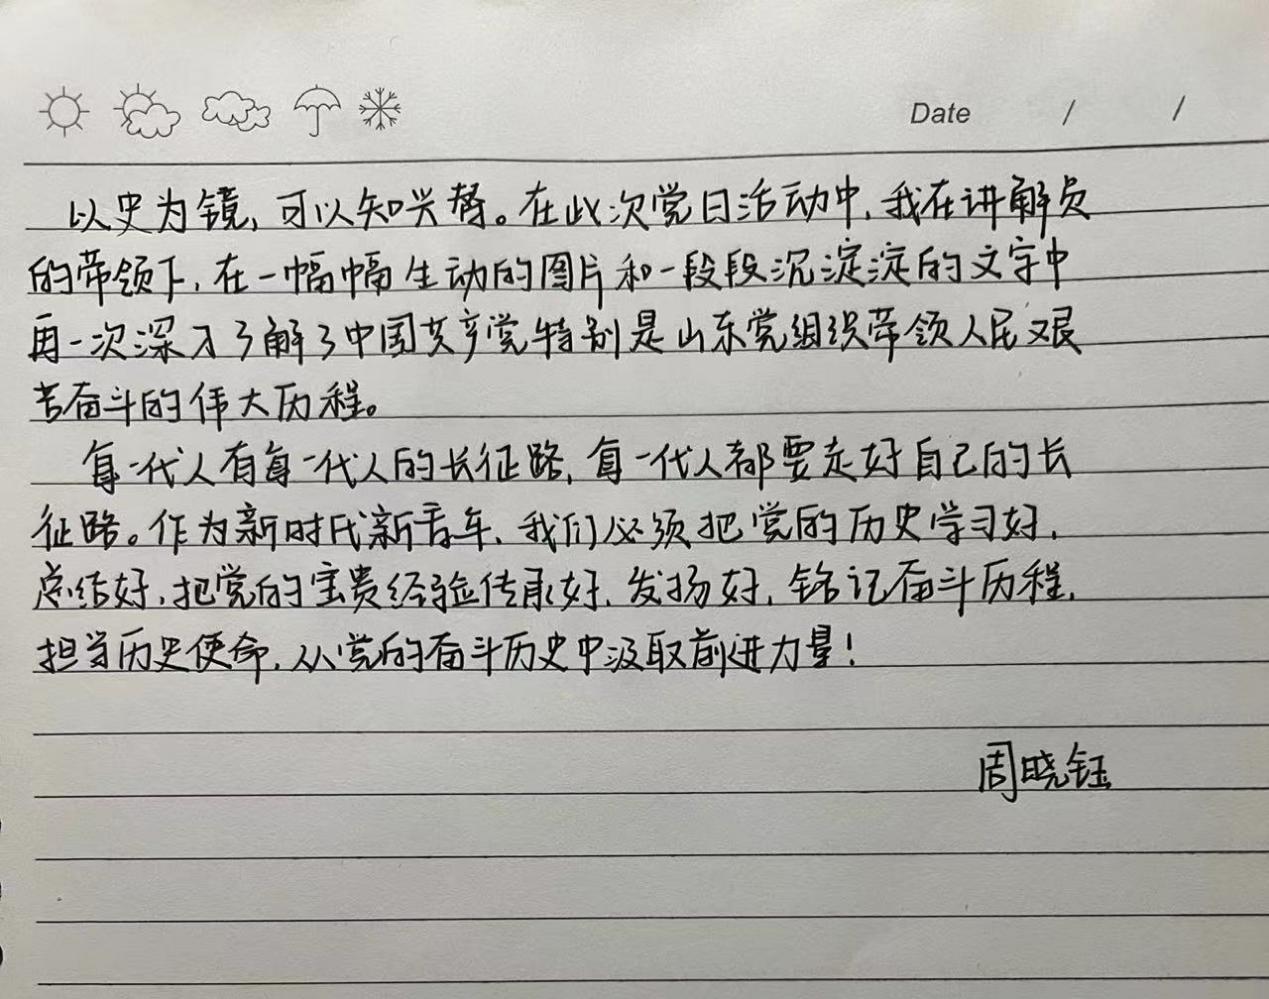 Date / /
以史为镜,可以知兴替。在此次党日活动中,我在讲解员
的带领下,在一幅幅生动的图片和一段段沉淀淀的文字中
再一次深入了解了中国共产党特别是山东党组织带领人民艰
苦奋斗的伟大历程。
每一代人有每一代人的长征路,每一代人都要走好自己的长
征路。作为新时代新青年,我们必须把党的历史学习好,
总结好,把党的宝贵经验传承好,发扬好,铭记奋斗历程,
担当历史使命,从党的奋斗历史中汲取前进力量!
周晓钰